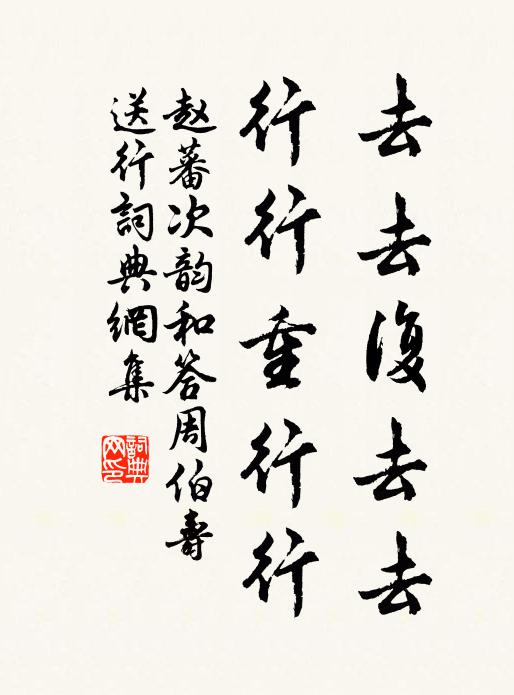 去去復去去
行行重行行
赵蕃次韵和答周伯壽
送行詞典網集
詞典网印